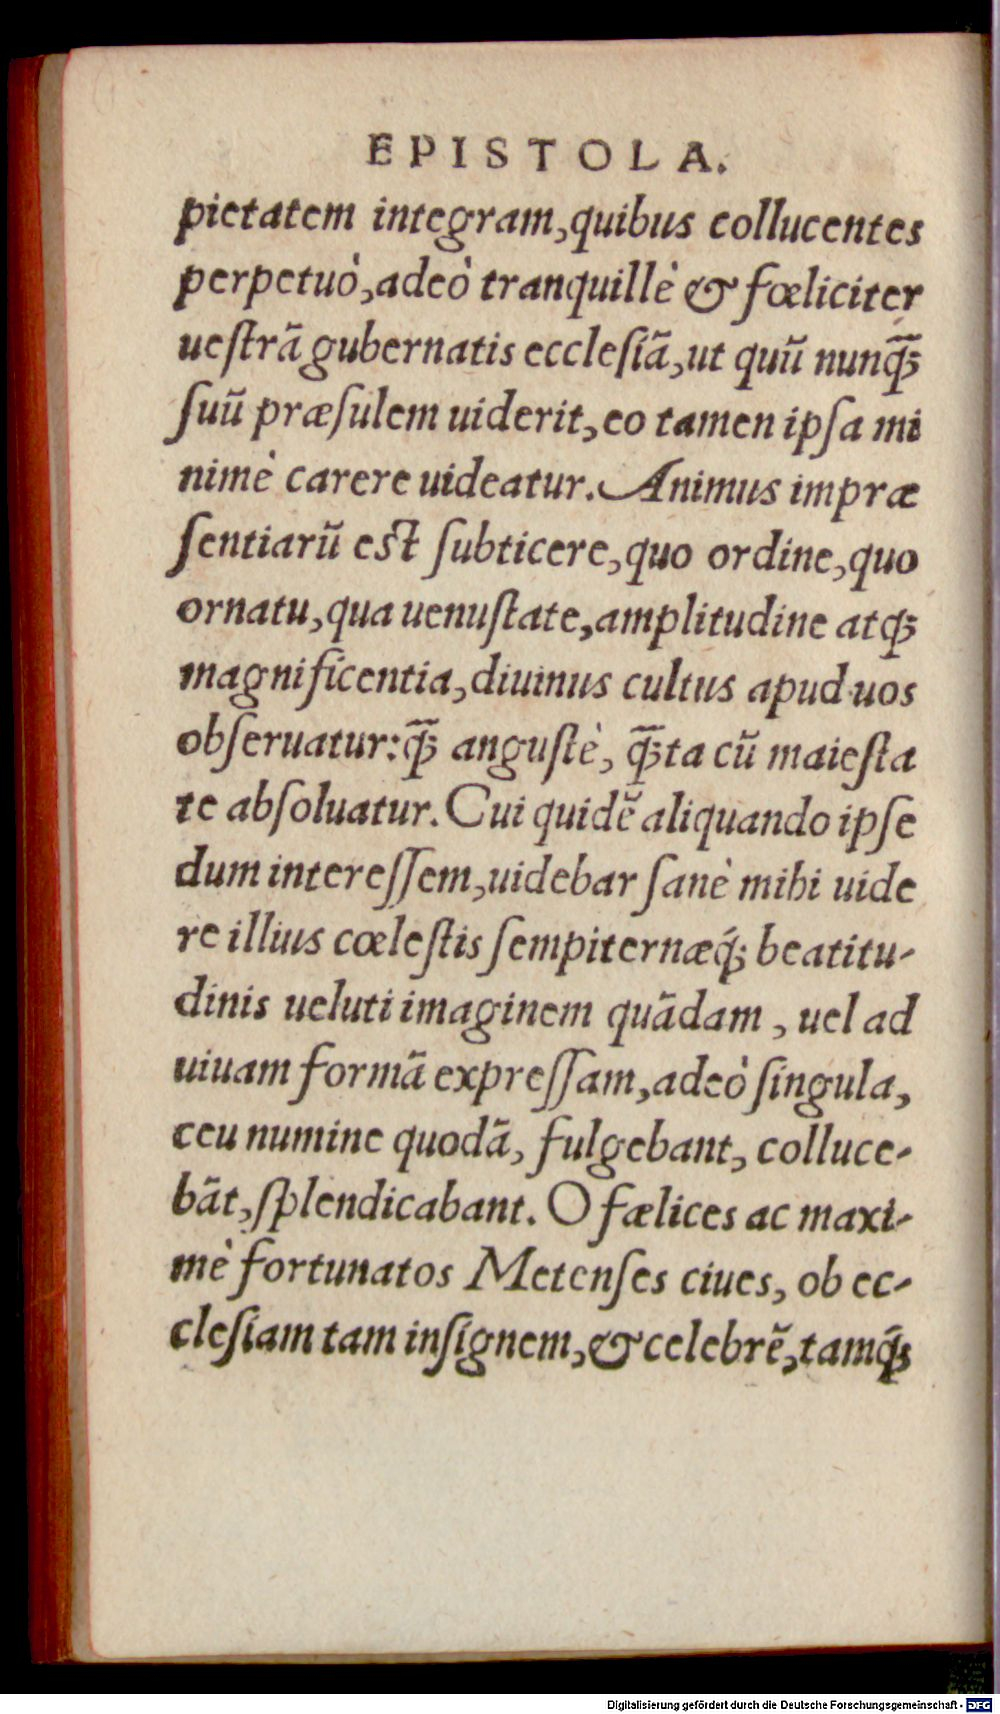 EPISTOLA.
pietatem integram, quibus collucentes
perpetuò, adeò tranquillè & fœliciter
ueſtrā gubernatis eccleſiā, ut quū nunq̄ꝫ
ſuū præſulem uiderit, eo tamen ipſa mi
nimè carere uideatur. Animus impræ
ſentiarū eſt ſubticere, quo ordine, quo
ornatu, qua uenuſtate, amplitudine atqꝫ
magnificentia, diuinus cultus apud uos
obſeruatur: q̄ꝫ anguſtè, q̄ꝫta cū maieſta
te abſoluatur. Cui quidē aliquando ipſe
dum intereſſem, uidebar ſanè mihi uide
re illius cœleſtis ſempiternæq́ꝫ beatitu-
dinis ueluti imaginem quādam, uel ad
uiuam formā expreſſam, adeò ſingula,
ceu numine quodā, fulgebant, colluce-
bāt, ſplendicabant. O fælices ac maxi-
mè fortunatos Metenſes ciues, ob ec-
cleſiam tam inſignem, & celebrē, tamq́ꝫ
Digitalisierung gefördert durch die Deutsche Forschungsgemeinschaft - DFG